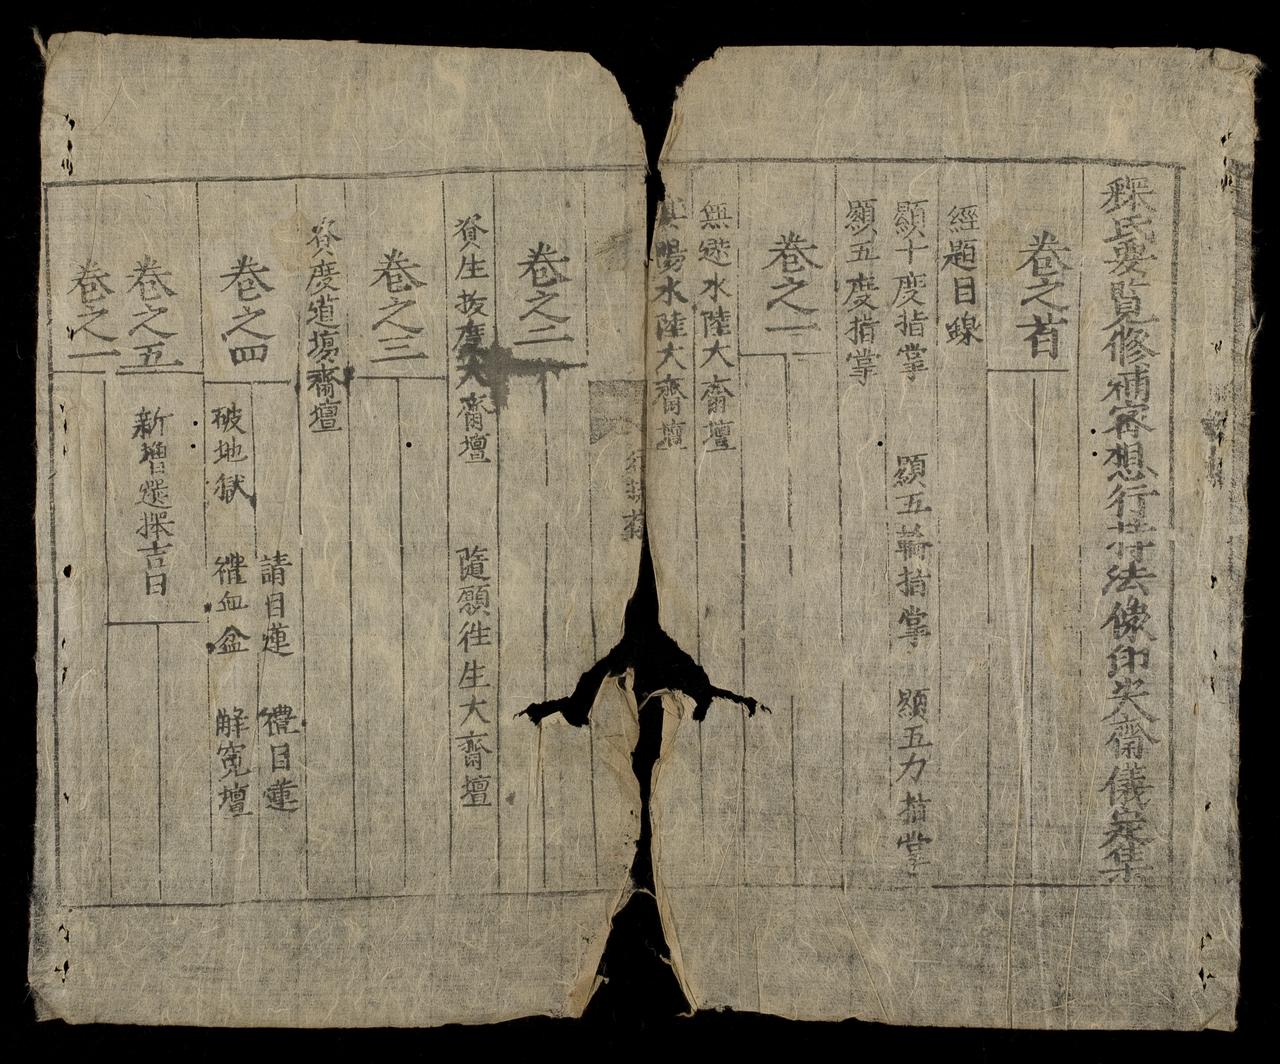 氏要覧修補審想行持法像印大齋儀定集
卷之首
經題目錄
顯十度指掌 顯五輪指掌 顯五力指掌
顯五度指掌
卷之一
無遮水陸大齋壇
陽水陸大齋壇
卷之二
資生拔度大齋壇 隨願徃生大齋壇
卷之三
資度道場齋壇
卷之四
請目蓮 禮目蓮
破地獄 禮血盆 觧寃壇
卷之五
新増選擇吉日
卷之一